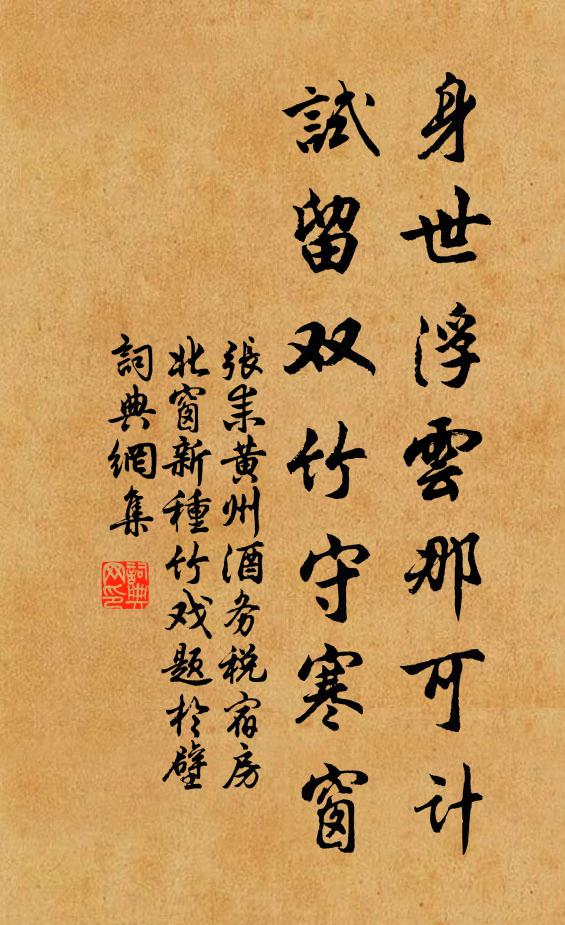 身世浮雲那可计
試留双竹守寒窗
張耒黄州酒务税宿房
北窗新種竹戏题於壁
詞典網集
詞典网印